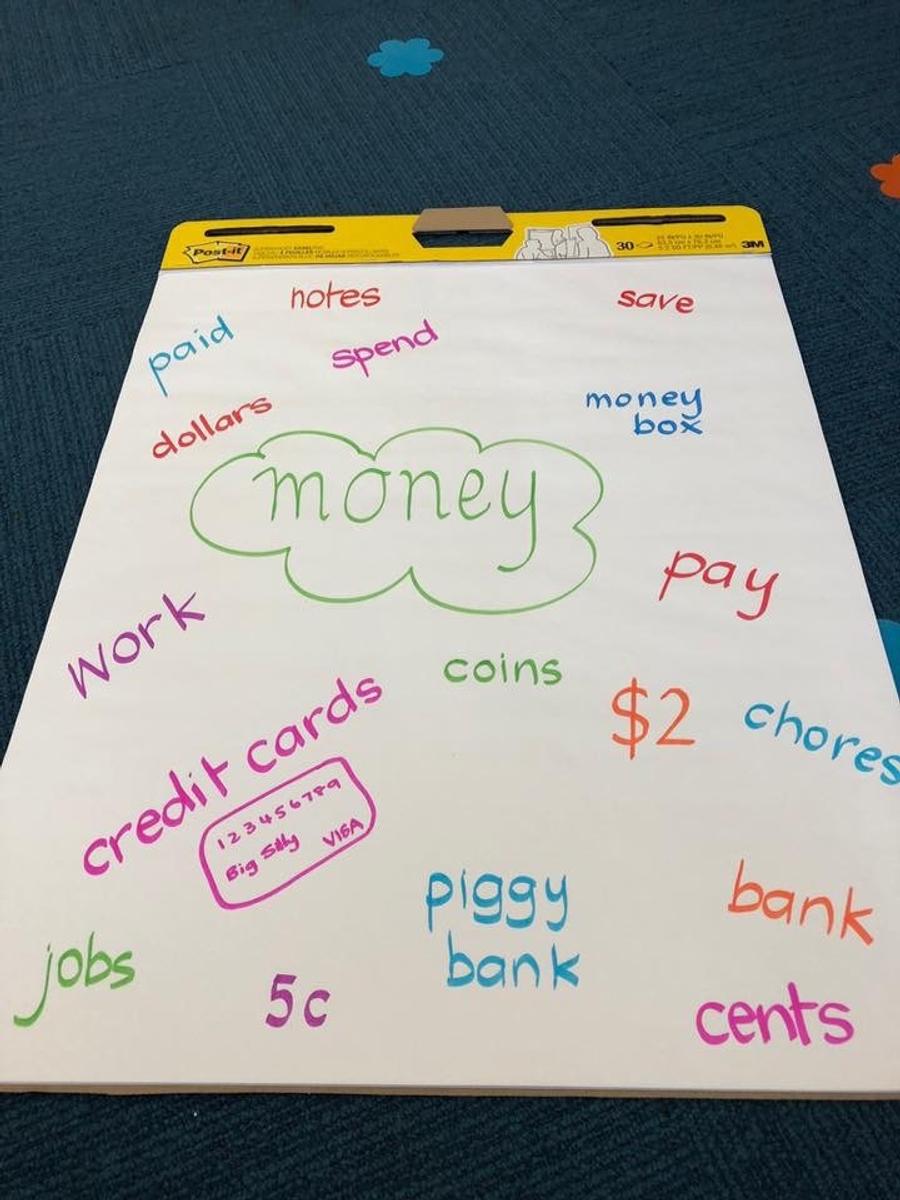 Post-it
30
3M
notes
save
paid
spend
dollars
money
box
money
pay
work
coins
credit cards
$2
chores
123456789
Big Silly VISA
piggy
bank
bank
jobs
5c
cents